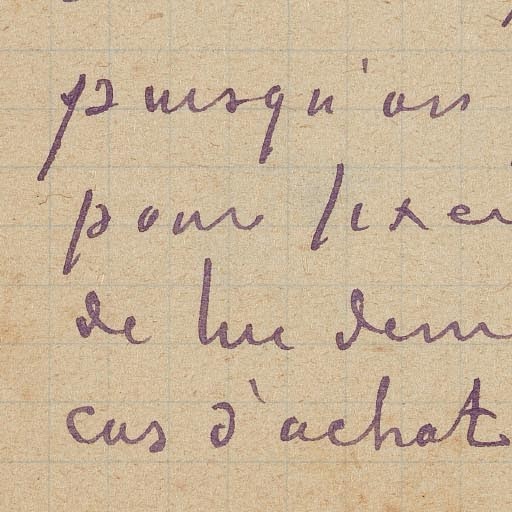 puisqu'on
pour fixer
de lui dem
cas d'achat